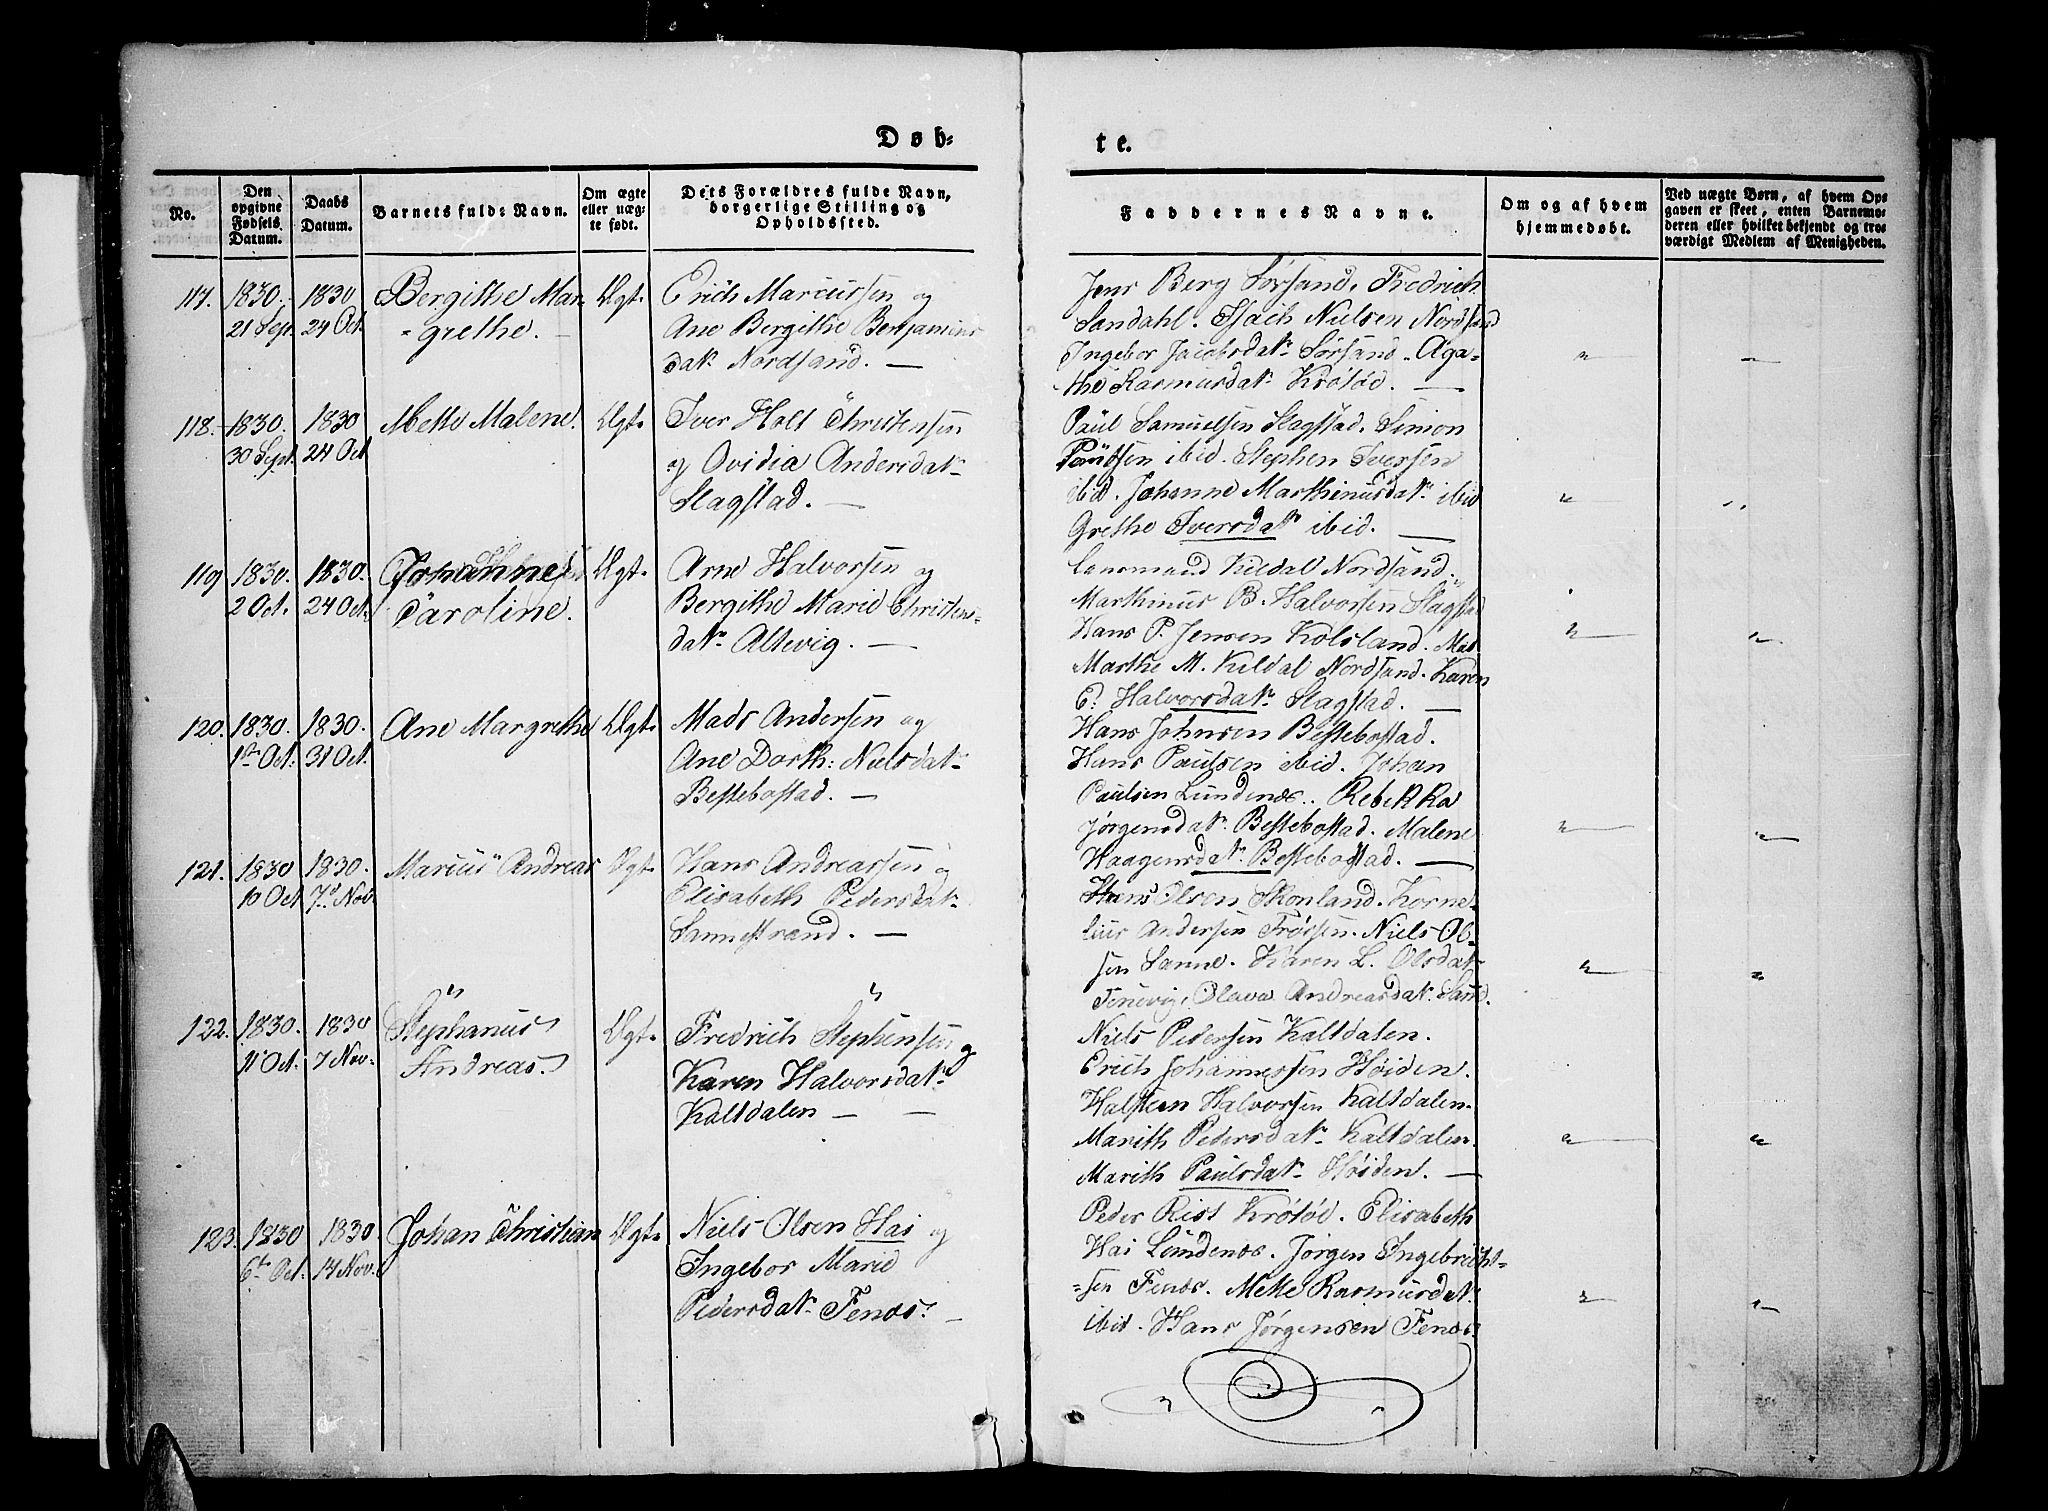 Døb-
te.
No.
Den opgivne Fødsels Datum.
Daabs Datum.
Barnets fulde Navn.
Om ægte eller uæg- te født.
Dets Forældres fulde Navn, borgerlige Stilling og Opholdssted.
Faddernes Navne.
Om og af hvem hjemmedøbt.
Ved uægte Børn, af hvem Op- gaven er skeet, enten Barnemo- deren eller hvilket bekjendt og tro- værdigt Medlem af Menigheden.
117. 1830. 1830 Bergithe Mar- Ægt. Erich Marcussen og
21 Sep. 24 Oct. grethe. Ane Bergithe Benjamins
datr Nordsand.
Jens Berg Sørsand, Fredrich
Sandahl. Isach Nielsen Nordsand
Ingebor Jacobsdatr Sørsand. Aga-
the Rasmusdatr Krøtøe.
118. 1830. 1830 Mette Malene. Ægt. Iver Holt Christensen
30 Sept. 24 Oct og Ovidia Andersdatr
Slagstad.
Paul Samuelsen Slagstad. Simon
Paulsen ibid. Stephen Iversen
ibid. Johanne Marthinusdatr ibid
Grethe Iversdatr ibid.
119 1830. 1830. Johanne Ægt. Arne Halvorsen og
2 Oct. 24 Oct. Caroline. Bergithe Marie Christens-
datr Altevig.
Lensmand Kildal Nordsand.
Marthinus B. Halvorsen Slagstad
Hans P. Jensen Kolsland. Mad
Marthe M. Kildal Nordsand. Karen
E. Halvorsdatr Slagstad.
120. 1830. 1830. Ane Margrethe Ægt. Mads Andersen og
1ste Oct. 31 Oct. Ane Dorth: Nielsdatr
Bessebostad.
Hans Johnsen Bessebostad.
Hans Paulsen ibid. Johan
Paulsen Lundenæs. Rebekka
Jørgensdatr Bessebostad. Malene
Haagensdatr Bessebostad.
121. 1830 1830. Marcus Andreas Ægt. Hans Andreassen og
10 Oct 7de Nov. Elisabeth Pedersdatr
Sannestrand.
Hans Olsen Skonland. Korne-
lius Andersen Frøssen. Niels Ol-
sen Sanne. Karen L. Olsdatr
Fenevig, Olava Andreasdatr Sand.
122. 1830. 1830 Stephanus Ægt. Fredrich Stephensen og
11 Oct. 7 Nov. Andreas. Karen Halvorsdatr
Kaltdalen
Niels Pedersen Kaltdalen.
Erich Johannessen Høiden.
Halsten Halvorsen Kaltdalen.
Marith Pedersdatr Kaltdalen.
Marith Paulsdatr Høiden.
123. 1830 1830 Johan Christian Ægt. Niels Olsen Hai og
6te Oct. 14 Nov. Ingebor Marie
Pedersdatr Fenæs.
Peder Rist Krøtøe. Elisabeth
Hai Lundenæs. Jørgen Ingebricht-
sen Fenæs. Mette Rasmusdatr
ibid. Hans Jørgensen Fenæs.